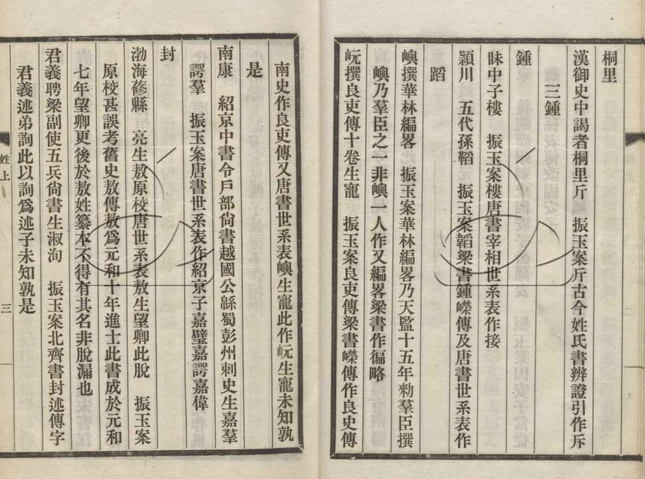 桐里
漢御史中謁者桐里斤　振玉案斤古今姓氏書辨證引作斥
三鍾
鍾
眛中子樓　振玉案樓唐書宰相世系表作接
潁川　五代孫蹈　振玉案韜梁書鍾嶸傳及唐書世系表作
蹈
嶼撰華林編畧　振玉案華林編畧乃天監十五年勑羣臣撰
嶼乃羣臣之一非嶼一人作又編畧梁書作徧略
岏撰良吏傳十卷生寵　振玉案良吏傳梁書嶸傳作良史傳
南史作良吏傳又唐書世系表嶼生寵此作岏生寵未知孰
是
南康　紹京中書令戶部尙書越國公緜蜀彭州刺史生嘉羣
諤羣　振玉案唐書世系表作紹京子嘉璧嘉諤嘉偉
封
渤海蓨縣　亮生敖原校唐世系表敖生望卿此脫　振玉案
原校甚誤考舊史敖傳敖爲元和十年進士此書成於元和
七年望卿更後於敖姓纂本不得有其名非脫漏也
君義聘梁副使五兵尙書生淑洵　振玉案北齊書封述傳字
君義述弟詢此以詢爲述子未知孰是
姓上
三